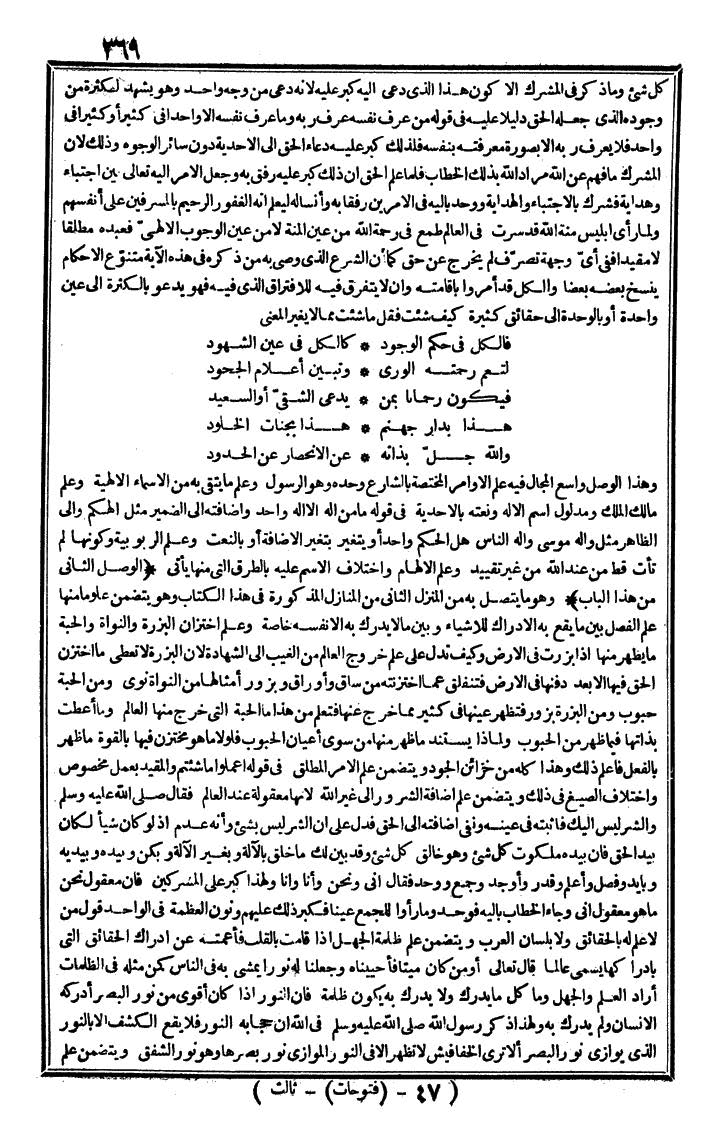 ٣٦٩
كل شئ وماذ كر فى المشرك الا كون هذا الذى دعى اليه كبر عليه لانه دعى من وجه واحد وهو يشهد الكثرة من
وجوده الذى جعله الحق دليلا عليه فى قوله من عرف نفسه عرف ربه وما عرف نفسه الا واحدا فى كثير أو كثيرا فى
واحد فلا يعرف ربه الا بصورة معرفته بنفسه فلذلك كبر عليه دعاء الحق الى الاحدية دون سائر الوجوه وذلك لان
المشرك ما فهم عن الله مراد الله بذلك الخطاب فلما علم الحق ان ذلك كبر عليه رفق به وجعل الامر اليه تعالى بين اجتباء
وهداية فشرك بالاجتباء والهداية ووحد باليه فى الامرين رفقا به وأنساله ليعلم انه الغفور الرحيم بالمسرفين على أنفسهم
ولما رأى ابليس منة الله قد سرت فى العالم طمع فى رحمة الله من عين المنة لا من عين الوجوب الالهىّ فعبده مطلقا
لا مقيدا فى أىّ وجهة تصرّف لم يخرج عن حق كما أن الشرع الذى وصى به من ذكره فى هذه الآية متنوّع الاحكام
ينسخ بعضه بعضا والكل قد أمروا باقامته وان لا يتفرق فيه للافتراق الذى فيه فهو يدعو بالكثرة الى عين
واحدة أو بالوحدة الى حقائق كثيرة كيف شئت فقل ما شئت مما لا يغير المعنى
فالكل فى حكم الوجود * كالكل فى عين الشهود
لتعم رحمته الورى * وتبين أعلام الجحود
فيكون رحمانا بمن * يدعى الشقىّ أو السعيد
هذا بدار جهنم * هذا بجنات الخلود
والله جلّ بذاته * عن الانحصار عن الحدود
وهذا الوصل واسع المجال فيه علم الاوامر المختصة بالشارع وحده وهو الرسول وعلم ما يتقى به من الاسماء الالهية وعلم
مالك الملك ومدلول اسم الاله ونعته بالاحدية فى قوله ما من اله الا اله واحد واضافته الى الضمير مثل الهكم والى
الظاهر مثل واله موسى واله الناس هل الحكم واحد أو يتغير بتغير الاضافة أو بالنعت وعلم الربوبية وكونها لم
تأت قط من عند الله من غير تقييد وعلم الالهام واختلاف الاسم عليه بالطرق التى منها يأتى ﴿الوصل الثانى
من هذا الباب﴾ وهو ما يتصل به من المنزل الثانى من المنازل المذكورة فى هذا الكتاب وهو يتضمن علوما منها
علم الفصل بين ما يقع به الادراك للاشياء وبين ما لا يدرك به الا نفسه خاصة وعلم اختزان البزرة والنواة والحبة
ما يظهر منها اذا بزرت فى الارض وكيف تدل على علم خروج العالم من الغيب الى الشهادة لان البزرة لا تعطى ما اختزن
الحق فيها الا بعد دفنها فى الارض فتنفلق عما اختزنته من ساق وأوراق وبزور أمثالها من النواة نوى ومن الحبة
حبوب ومن البزرة بزور فتظهر عينها فى كثير مما خرج عنها فتعلم من هذا ما الحبة التى خرج منها العالم وما أعطت
بذاتها فيما ظهر من الحبوب ولماذا يستند ما ظهر منها من سوى أعيان الحبوب فلولا ما هو مختزن فيها بالقوة ما ظهر
بالفعل فاعلم ذلك وهذا كله من خزائن الجود ويتضمن علم الامر المطلق فى قوله اعملوا ما شئتم والمقيد بعمل مخصوص
واختلاف الصيغ فى ذلك ويتضمن علم اضافة الشرور الى غير الله لانها معقولة عند العالم فقال صلى الله عليه وسلم
والشر ليس اليك فاثبته فى عينه ونفى اضافته الى الحق فدل على ان الشر ليس بشئ وأنه عدم اذ لو كان شيأ لكان
بيد الحق فان بيده ملكوت كل شئ وهو خالق كل شئ وقد بين لك ما خلق بالآلة وبغير الآلة وبكن وبيده وبيديه
وبايد وفصل وأعلم وقدر وأوجد وجمع ووحد فقال انى ونحن وأنا وانا ولهذا كبر على المشركين فان معقول نحن
ما هو معقول انى وجاء الخطاب باليه فوحد وما رأوا للجمع عينا فكبر ذلك عليهم ونون العظمة فى الواحد قول من
لا علم له بالحقائق ولا بلسان العرب ويتضمن علم ظلمة الجهل اذا قامت بالقلب فأعمته عن ادراك الحقائق التى
بادراكها يسمى عالما قال تعالى أومن كان ميتا فأحييناه وجعلنا له نورا يمشى به فى الناس كمن مثله فى الظلمات
أراد العلم والجهل وما كل ما يدرك ولا يدرك به يكون ظلمة فان النور اذا كان أقوى من نور البصر أدركه
الانسان ولم يدرك به ولهذا ذكر رسول الله صلى الله عليه وسلم فى الله ان حجابه النور فلا يقع الكشف الا بالنور
الذى يوازى نور البصر ألا ترى الخفافيش لا تظهر الا فى النور الموازى نور بصرها وهو نور الشفق ويتضمن علم
( ٤٧ - (فتوحات) - ثالث )